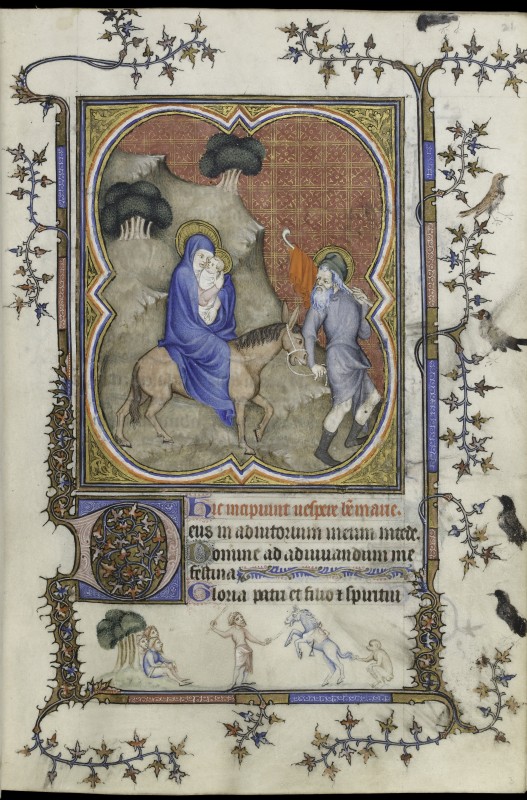 Hic incipiunt uespere bẽ marie.
Deus in adiutorium meum intẽde.
Domine ad adiuuandum me
festina
Gloria patri et filio ⁊ spiritui